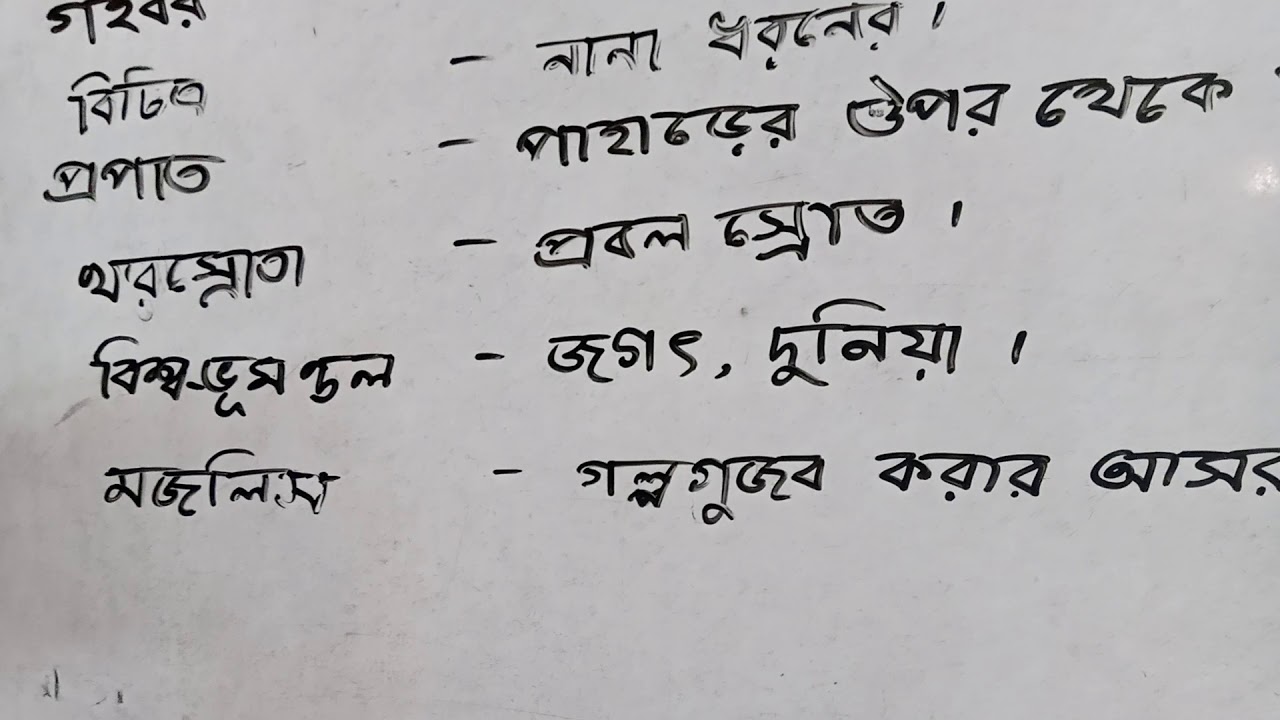 গহবর
বিচিত্র - নানা ধরনের।
প্রপাত - পাহাড়ের ওপর থেকে
খরস্রোতা - প্রবল স্রোত।
বিশ্ব-ভূমন্ডল - জগৎ, দুনিয়া।
মজলিস - গল্পগুজব করার আসর